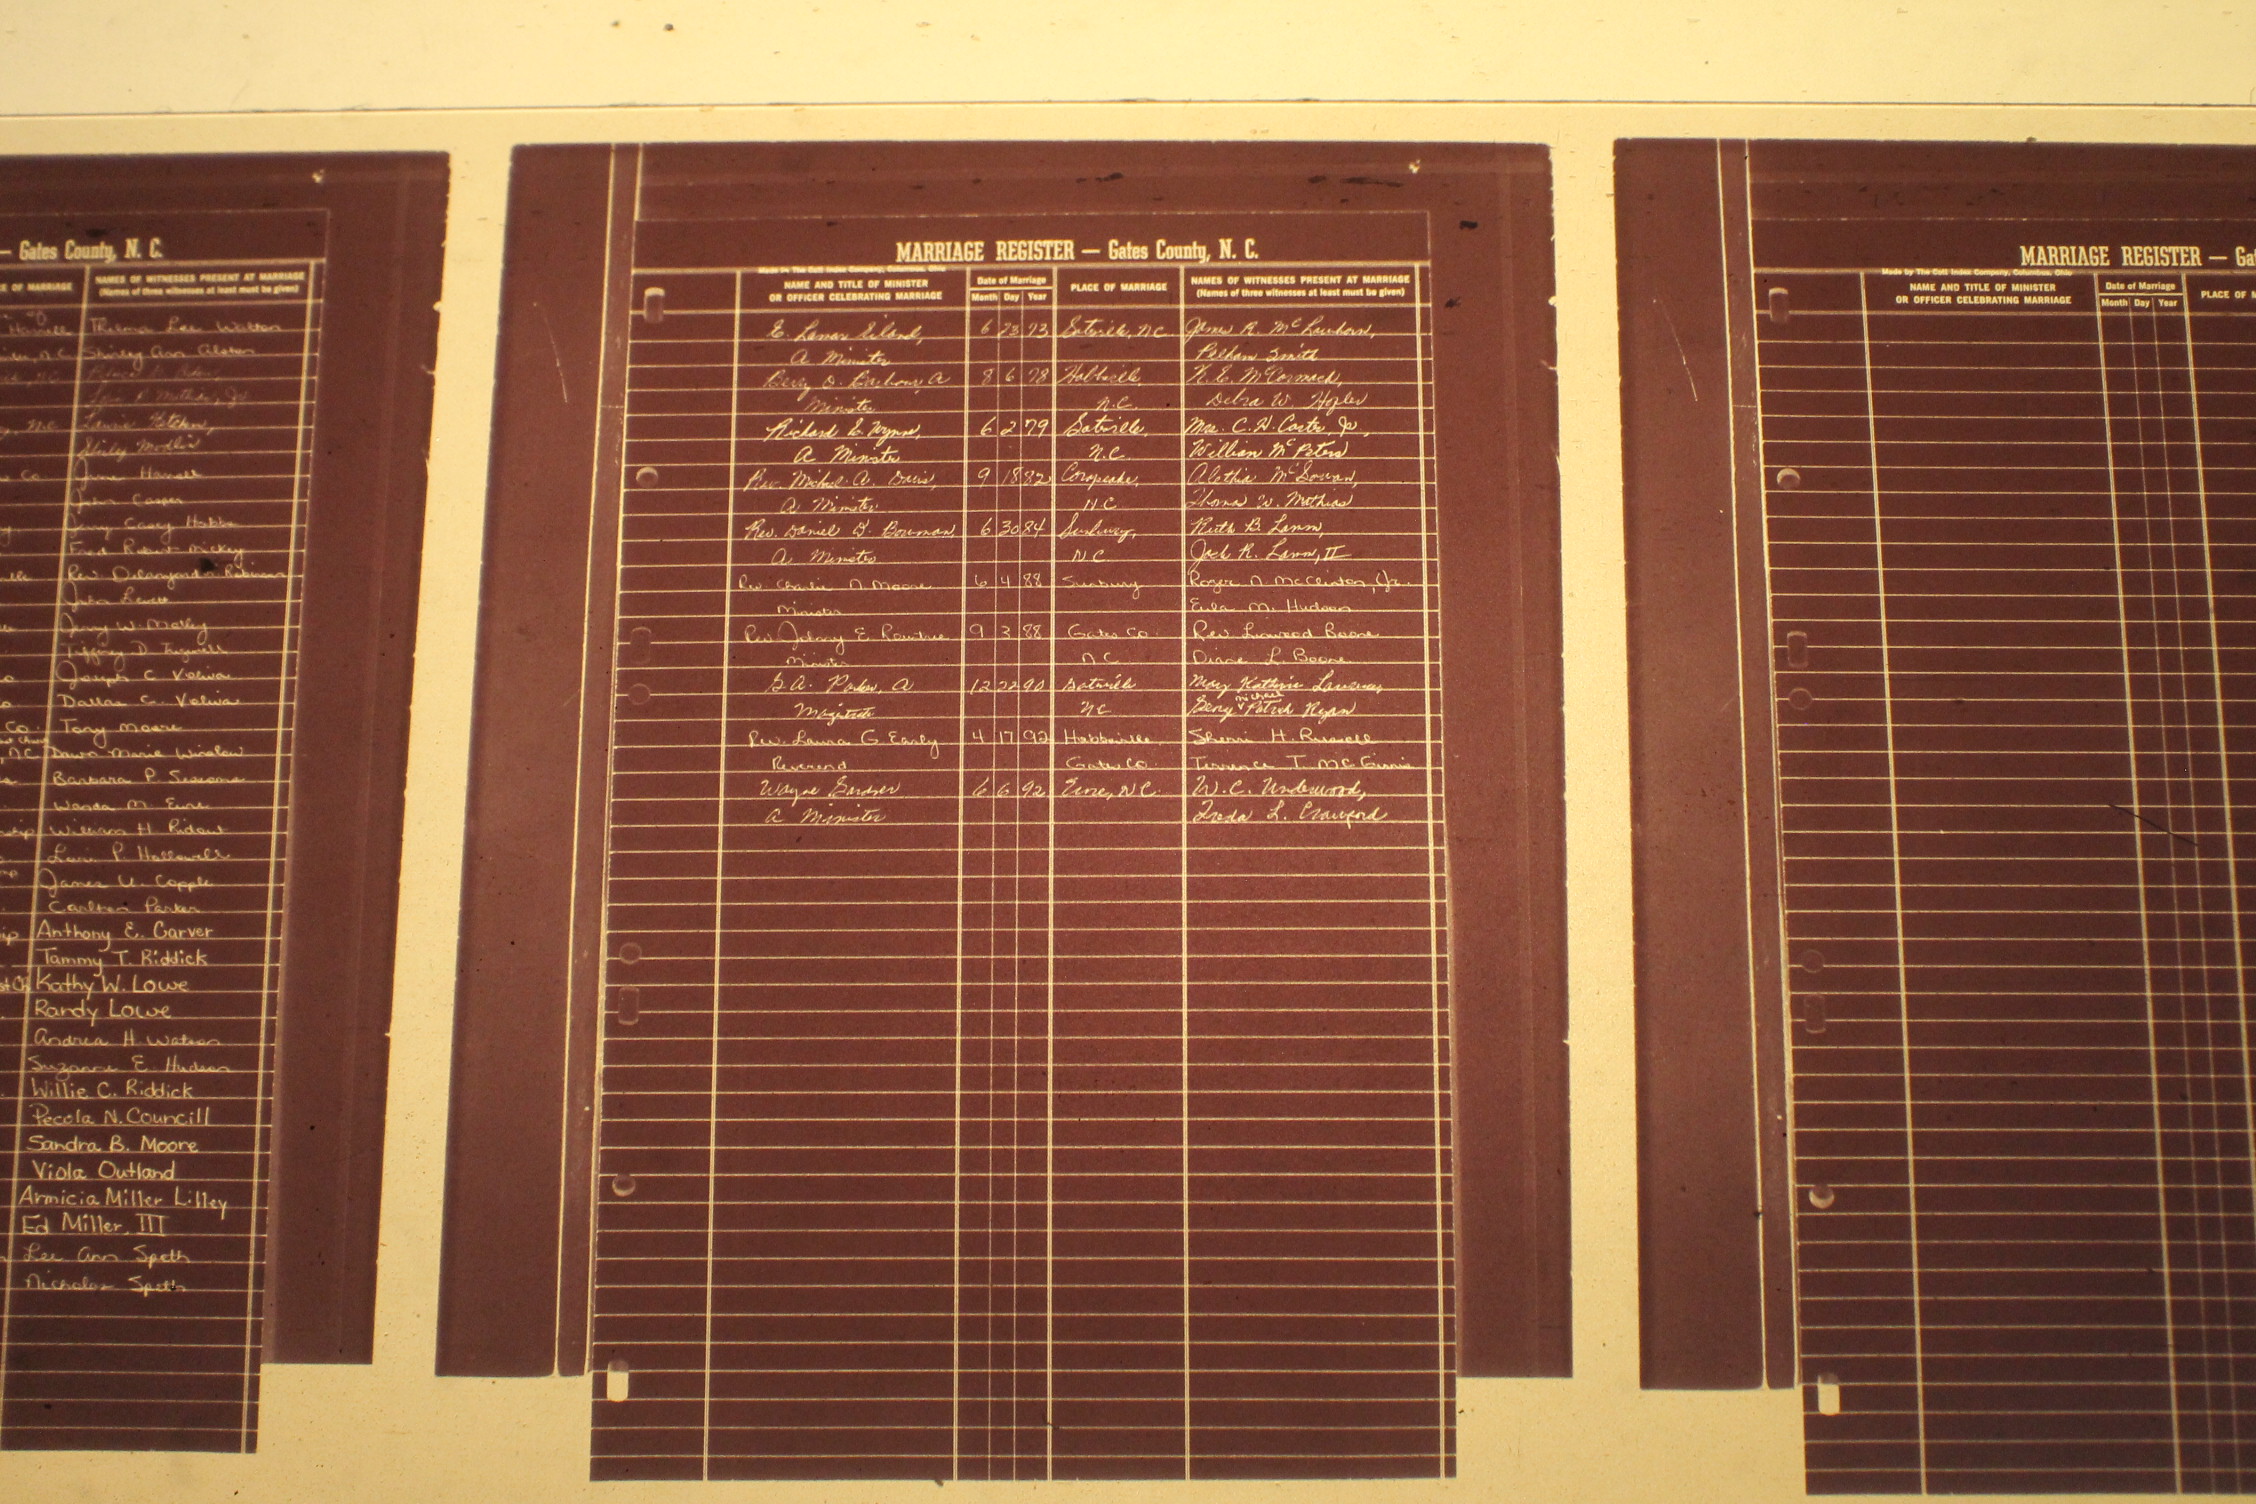 — Gates County, N. C.
E OF MARRIAGE
NAMES OF WITNESSES PRESENT AT MARRIAGE
(Names of three witnesses at least must be given)
Thelma Lee Walton
Shirley Ann Alston
Jr
Shirley Modlin
Co
June Harrell
John Casper
Jerry Casey Hobbs
Fred Robert Mickey
Rev.
John Lewis
Jerry W. Motley
Tiffany D.
Joseph C. Veliva
Dallas C. Veliva
Co. Tony Moore
, N.C. Dawn Marie Winslow
Barbara P. Sessoms
Wanda M. Eure
William H. Ridout
Lori P. Hollowell
James U. Copple
Carlton Parker
ip Anthony E. Carver
Tammy T. Riddick
st Ch Kathy W. Lowe
Randy Lowe
Andrea H. Watson
Suzanne E. Hudson
Willie C. Riddick
Pecola N. Councill
Sandra B. Moore
Viola Outland
Armicia Miller Lilley
Ed Miller, III
Lee Ann Speth
Nicholas Speth
MARRIAGE REGISTER — Gates County, N. C.
Made by The Cott Index Company, Columbus, Ohio
NAME AND TITLE OF MINISTER
OR OFFICER CELEBRATING MARRIAGE
Date of Marriage
Month Day Year
PLACE OF MARRIAGE
NAMES OF WITNESSES PRESENT AT MARRIAGE
(Names of three witnesses at least must be given)
E. Lamar 6 23 73 Gatesville, N.C. James R. McLawhorn,
A Minister Pelham Smith
O. Barbour, A 8 6 78 Hobbsville K. E. McCormack,
Minister N.C. Debra W. Hofler
Richard E. Wynne, 6 2 79 Gatesville, Mrs. C. H. Carter Jr,
A Minister N.C. William McPeters
Rev. Michael A. Davis, 9 18 82 Corapeake, Alethia McGowan,
A Minister N.C. Thomas W. Mathias
Rev. Daniel D. Bowman, 6 30 84 Sunbury, Ruth B. Lamm,
A Minister N.C. Jack R. Lamm, II
Rev. Charlie N. Moore 6 4 88 Sunbury Roger N. McClinton, Jr.
Minister Eula M. Hudson
Rev Johnny E. Rountree 9 3 88 Gates Co. Rev. Linwood Boone
Minister N.C. Diane L. Boone
G.A. Parker, A 12 22 90 Gatesville Mary Kathrine Lawrence,
Magistrate N.C. Michael Patrick Ryan
Rev. Laura G. Early 4 17 92 Hobbsville, Sherri H. Russell
Reverend Gates Co. Terrence T. McGinnis
Wayne Gardner 6 6 92 Eure, N.C. W. C. Underwood,
A Minister Freda L. Crawford
MARRIAGE REGISTER — Ga
Made by The Cott Index Company, Columbus, Ohio
NAME AND TITLE OF MINISTER
OR OFFICER CELEBRATING MARRIAGE
Date of Marriage
Month Day Year
PLACE OF M